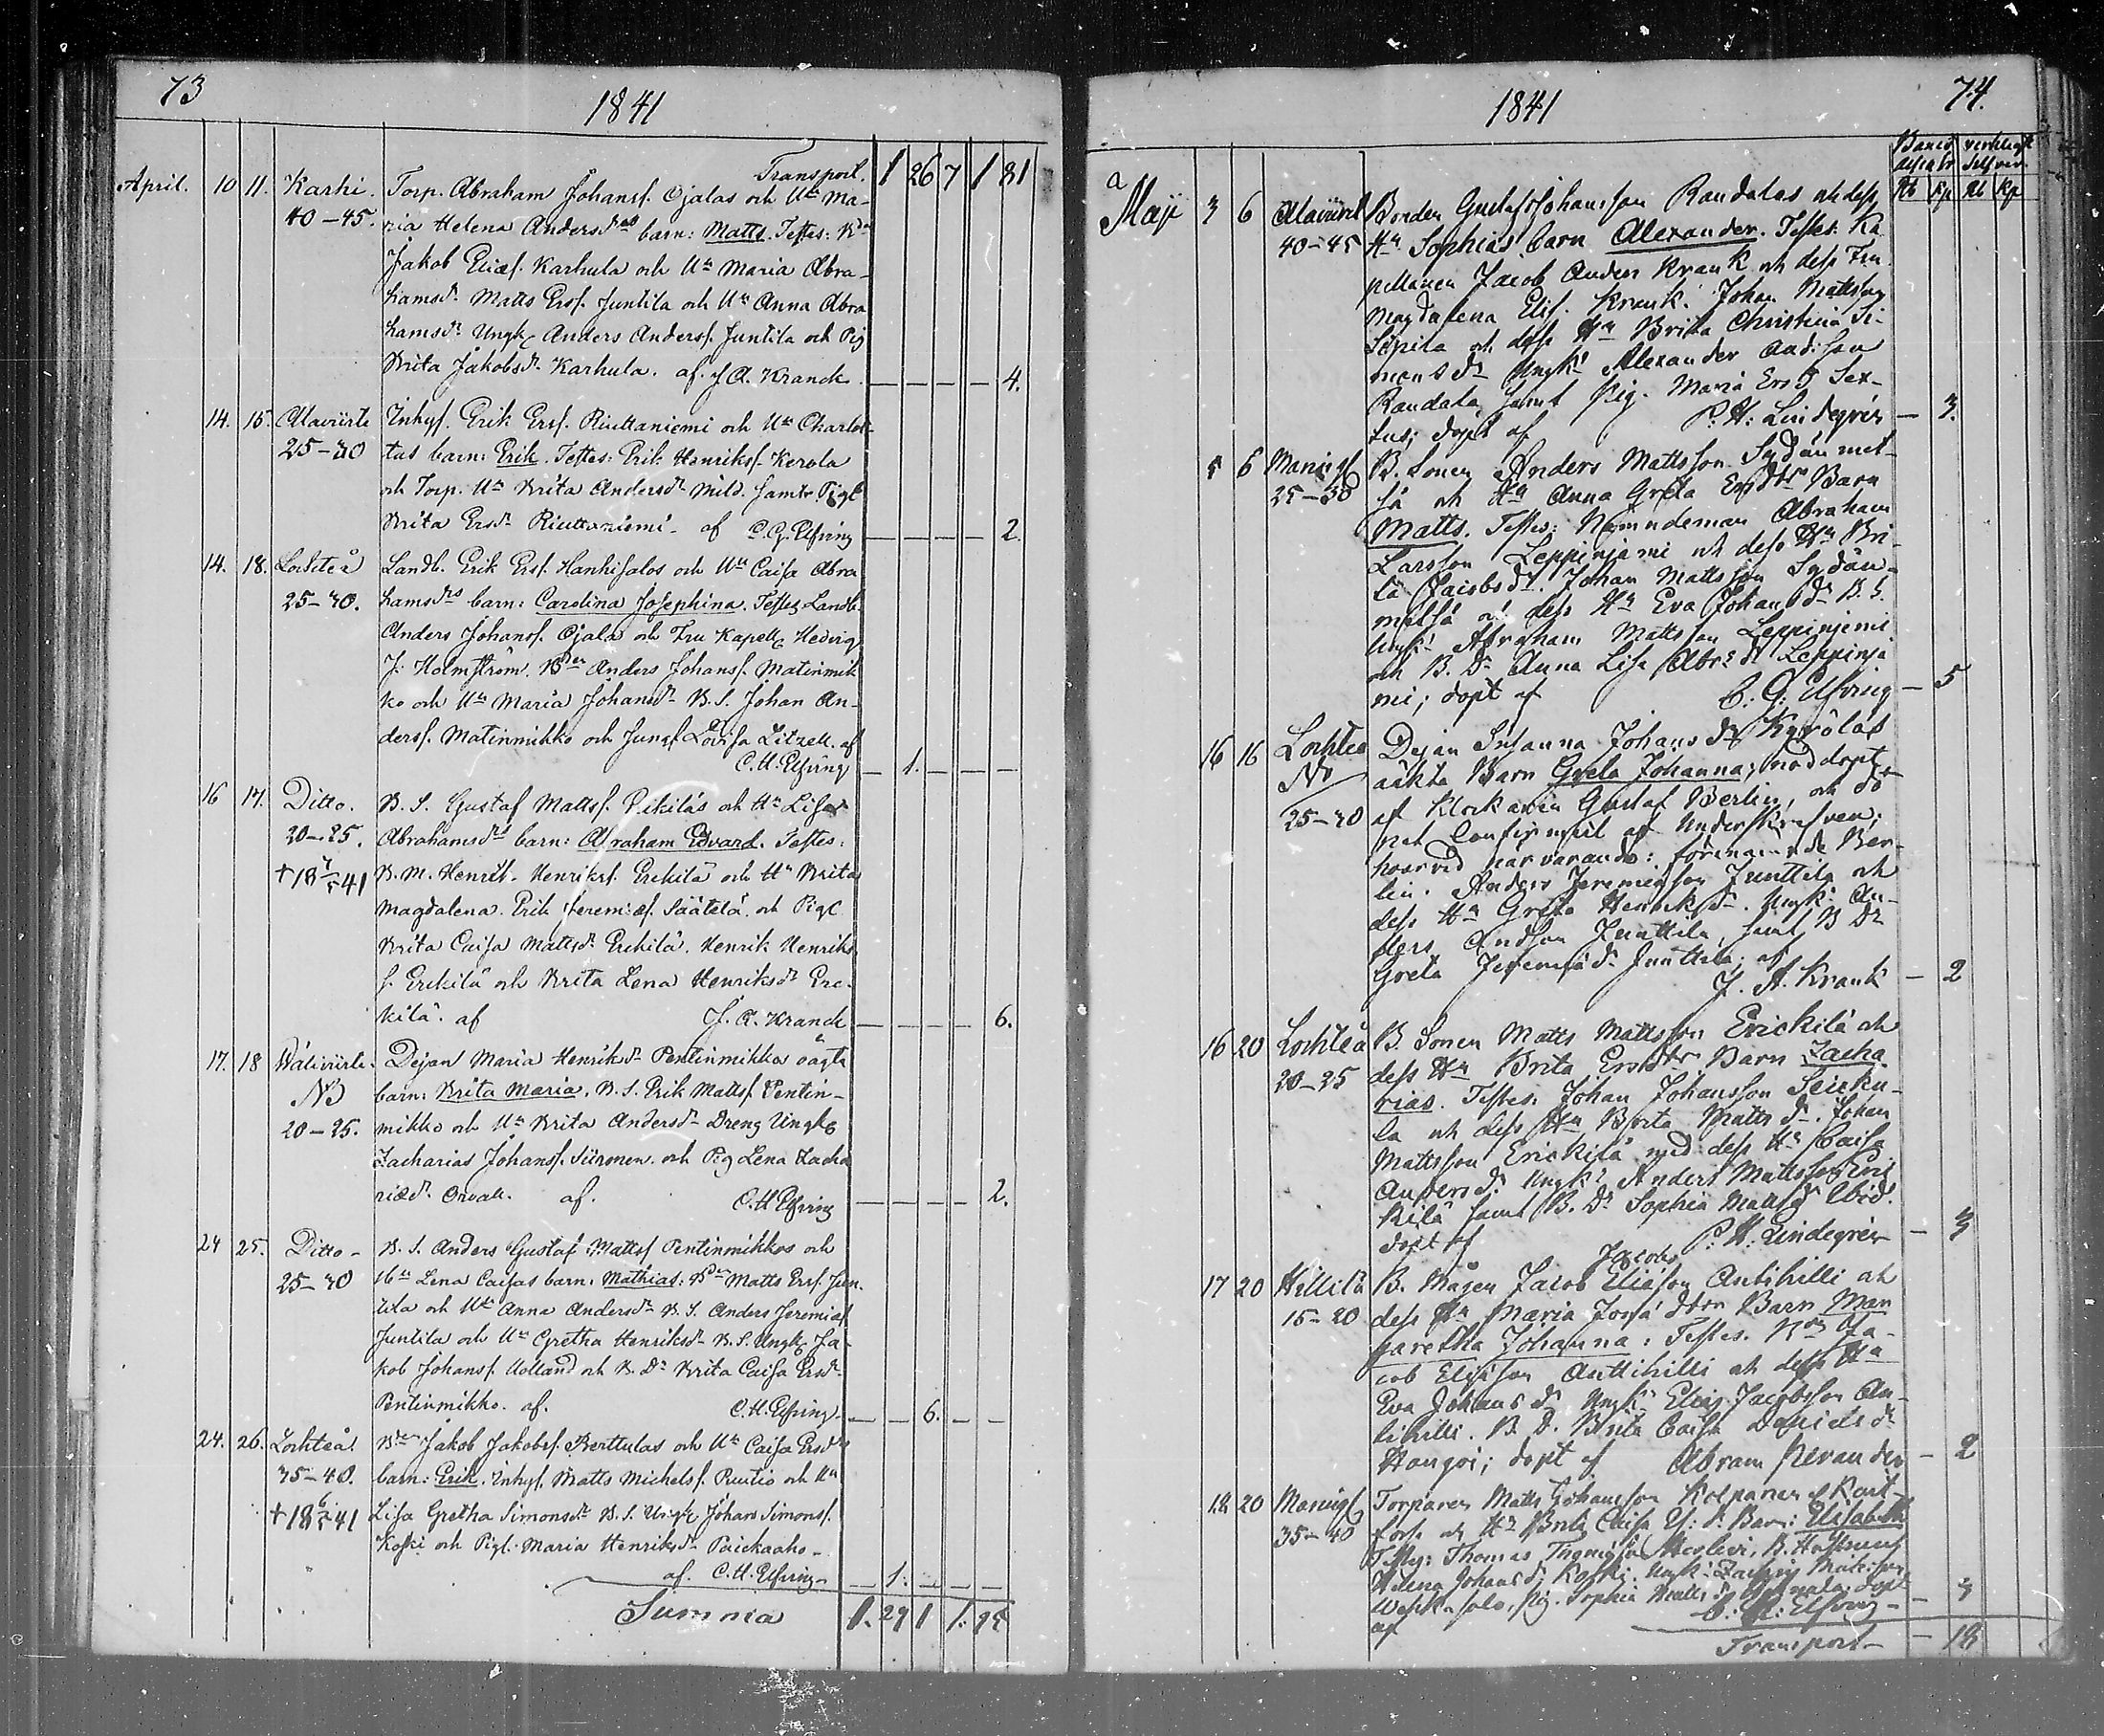 73
1841
Transport. 1 26 7 1 81
April. 10 11. Karhi. Torp. Abraham Johanss. Ojalas och Hu Ma-
40-45. ria Helena Andersdrs barn: Matts. Testes: Bdn
Jakob Eliæs. Karhula och Hu Maria Abra-
hamsdr Matts Erss. Juntila och Hu Anna Abra
hamsdr Ungk Anders Anderss. Juntila och Pig
Brita Jakobsdr Karhula. af J. A. Kranck. — — — — 4.
14. 15. Alaviirte Inhys. Erik Erss. Riuttaniemi och Hu Charlot-
25-30 tas barn: Erik. Testes: Erik Henrikss. Kerola
och Torp. Hu Brita Andersdr Mild. samt Pigl
Brita Ersdr Riuttaniemi. af C. H. Elfving — — — — 2.
14. 18. Lochteå Landb. Erik Erss. Hanhisalos och Hu Caisa Abra
25-30. hamsdrs barn: Carolina Josephina. Testes Landb.
Anders Johanss. Ojala och Fru Kapell Hedvig
J. Holmström. Bden Anders Johanss. Matinmik
ko och Hu Maria Johansdr B. S. Johan An-
derss. Matinmikko och Jungf Lovisa Litzell. af
C. H. Elfving — 1. — — —
16 17. Ditto. B. S. Gustaf Mattss. Pekiläs och Hu Lisa
20-25. Abrahamsdrs barn: Abraham Edvard. Testes:
+18 7/5 41 B. M. Henrik Henrikss. Erkilä och Hu Brita
Magdalena. Erik Jeremiæs. Säätelä och Pigl
Brita Caisa Mattsdr Erkilä. Henrik Henriks
s. Erikilä och Brita Lena Henriksdr Ere-
kilä. af J. A. Kranck — — — — 6.
17. 18 Wäliviirte. Dejan Maria Henriksdr Pentinmikkos oägta
NB barn: Brita Maria. B. S. Erik Mattss. Pentin-
20-25. mikko och Hu Brita Andersdr Dreng Ungk
Zacharias Johanss. Siironen. och Pig Lena Zacha
riædr Orvall. af. C. H. Elfving — — — — 2.
24 25. Ditto- B. S. Anders Gustaf Mattss Pentinmikkos och
25-30 Hu Lena Caisas barn: Mathias: Bden Matts Erss. Jun.
tila och Hu Anna Andersdr B. S. Anders Jeremiæs
Juntila och Hu Gretha Henriksdr B. S. Ungk Ja-
kob Johanss. Uolland och B. Dr Brita Caisa Ersdr
Pentinmikko. af. C. H. Elfving — — 6. — —
24. 26. Lochteå. Bden Jakob Jakobss. Berttulas och Hu Caisa Ersdrs
35-40. barn: Erik. Inhys. Matts Michelss. Ruutio och Hu
+18 6/5 41 Lisa Gretha Simonsdr B. S. Ungk Johans Simonss.
Koski och Pigl. Maria Henriksdr Paickaaho-
af. C. H. Elfving — 1. — — —
Summa 1. 29 1 1. 95
1841
74.
Banco Assign verkligt Silfver
Rb Kp Rb Kp
Maji 3 6 Alaviirte Bonden Gustaf Johansson Randalas och dess
40-45 Hu Sophias barn Alexander. Testes: Ka
pellanen Jacob Anders Krank och dess Fru
Magdalena Elis. Krank. Johan Mattsson
Lepita och dess Hu Brita Christina Si-
monsdr Ungk: Alexander Andersson
Randala, samt Pig. Maria Ersd Sex-
tus; döpt af P. H. Lindegrén — 3.
5 6 Maningk B. Sonen Anders Mattsson Sydänmet-
25-30 sä och Hu Anna Greta Ersdtrs Barn
Matts. Testes: Nämndeman Abraham
Larsson Leppinjemi och dess Hu Bri-
ta Jacobsdr. Johan Mattsson Sydän-
metsä och dess Hu Eva Johansdr B. S.
Ungk: Abraham Mattsson Leppinjemi
och B. Dr Anna Lisa Abrs dr Leppinje
mi; döpt af C. H. Elfving — 5
16 16 Lochteå Dejan Susanna Johans dr Kyröläs
NB oäkta Barn Greta Johanna; nöddöpt
25-30 af Klockaren Gustaf Berlin, och do
pet Confirmeret af Underskrifven;
hvarvid närvarande: förenämnde Ber-
lin. Anders Jeremiasson Junttila och
dess Hu Greta Henriksdr. Ungk: An-
ders Andsson Junttila, samt B Dr
Greta Jeremiædr Junttila; af
J. A. Krank — 2
16 20 Lochteå B Sonen Matts Mattsson Erickilä och
20-25 dess Hu Brita Ersdtrs Barn Zacha
rias. Testes. Johan Johansson Seicku-
la och dess Hu Brita Mattsdr. Johan
Mattsson Erickilä med dess Hu Caisa
Andersdr Ungk: Anders Mattsson Eric
kilä samt B. Dr Sophia Mattsdr Ibid.
döpt af P. H. Lindegrén — 3
Jacobs
17 20 Hillilä B. Mågen Jacob Eliæson Anttihilli och
15-20 dess Hu Maria Josua dtrs Barn Mar
garetha Johanna: Testes. Bdn Ja-
cob Eliæson Anttihilli och dess Hu
Eva Johansdr Ungk: Elias Jacobsson An-
tihilli. B. D. Brita Caisa Daniels dr
Hongoi; döpt af Abram Revander — 2
18 20 Maningk Torparen Matts Johansson Kolpanen
35-40 och Hu Brita Caisa Barn: Elisabeth
Testes: Thomas Thomasson
Helena Johansdr Koski. Ungk: Zachris Matsson
Pig. Sophia Mattsdr döpt
af C. H. Elfving — 3
Transport — 18